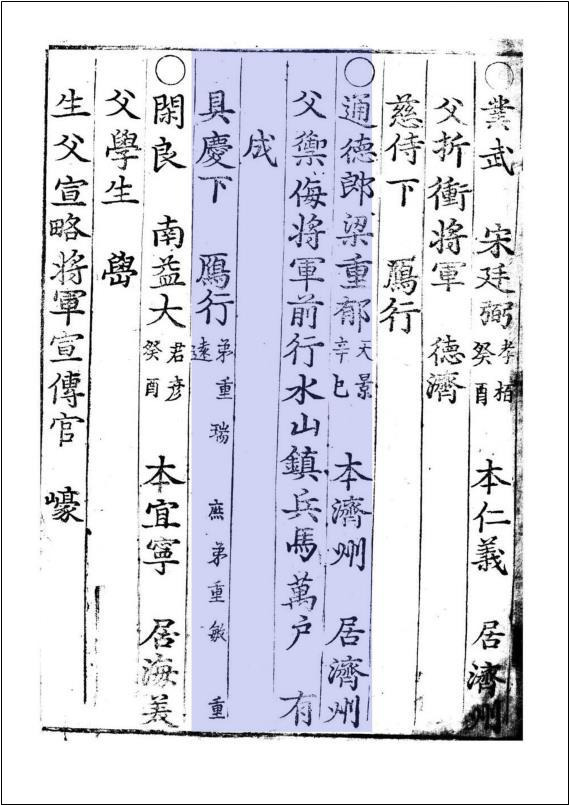 ○業武　宋廷弼 孝栢 癸酉　本仁義　居濟州
父折衝將軍　德濟
慈侍下　鴈行
○通德郎梁重郁 天景 辛巳　本濟州　居濟州
父禦侮將軍前行水山鎭兵馬萬戶　有
成
具慶下　鴈行 弟重瑞　庶弟重敏　重
遠
○閑良　南益大 君彦 癸酉　本宜寧　居海美
父學生　嶨
生父宣略將軍宣傳官　㠙